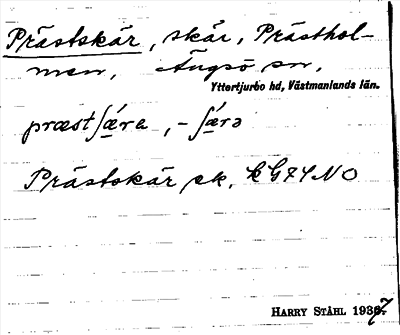 Prästskär, skär, Prästhol-
men, Ängsö sn,
Yttertjurbo hd, Västmanlands län.
præstʃǽra, -ʃǽrə
Prästskär sk,
HARRY STÅHL 1937.